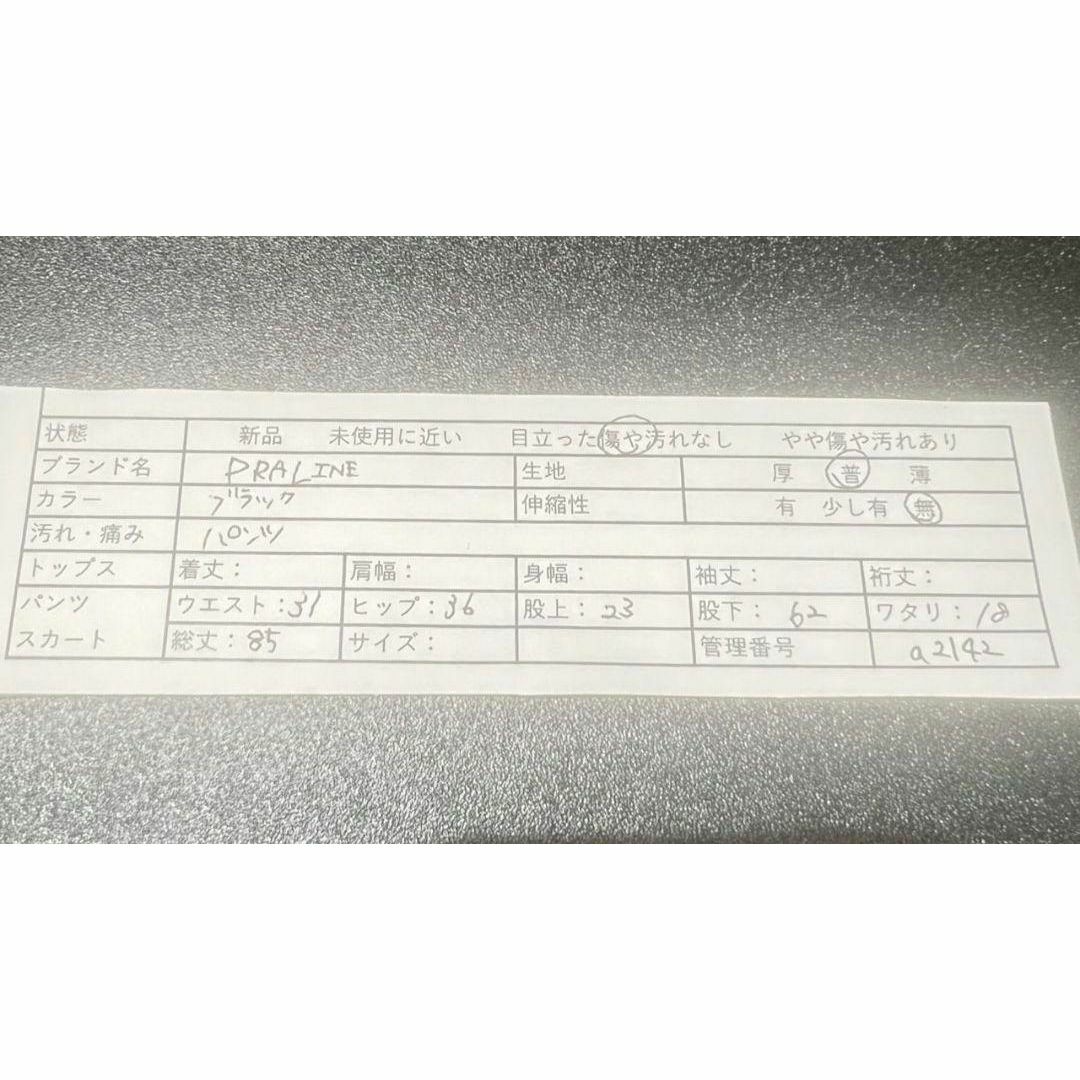 状態 新品 未使用に近い 目立った傷や汚れなし やや傷や汚れあり
ブランド名 PRALINE 生地 厚 普 薄
カラー ブラック 伸縮性 有 少し有 無
汚れ・痛み パンツ
トップス 着丈： 肩幅： 身幅： 袖丈： 裄丈：
パンツ ウエスト：31 ヒップ：36 股上：23 股下：62 ワタリ：18
スカート 総丈：85 サイズ： 管理番号 a2142